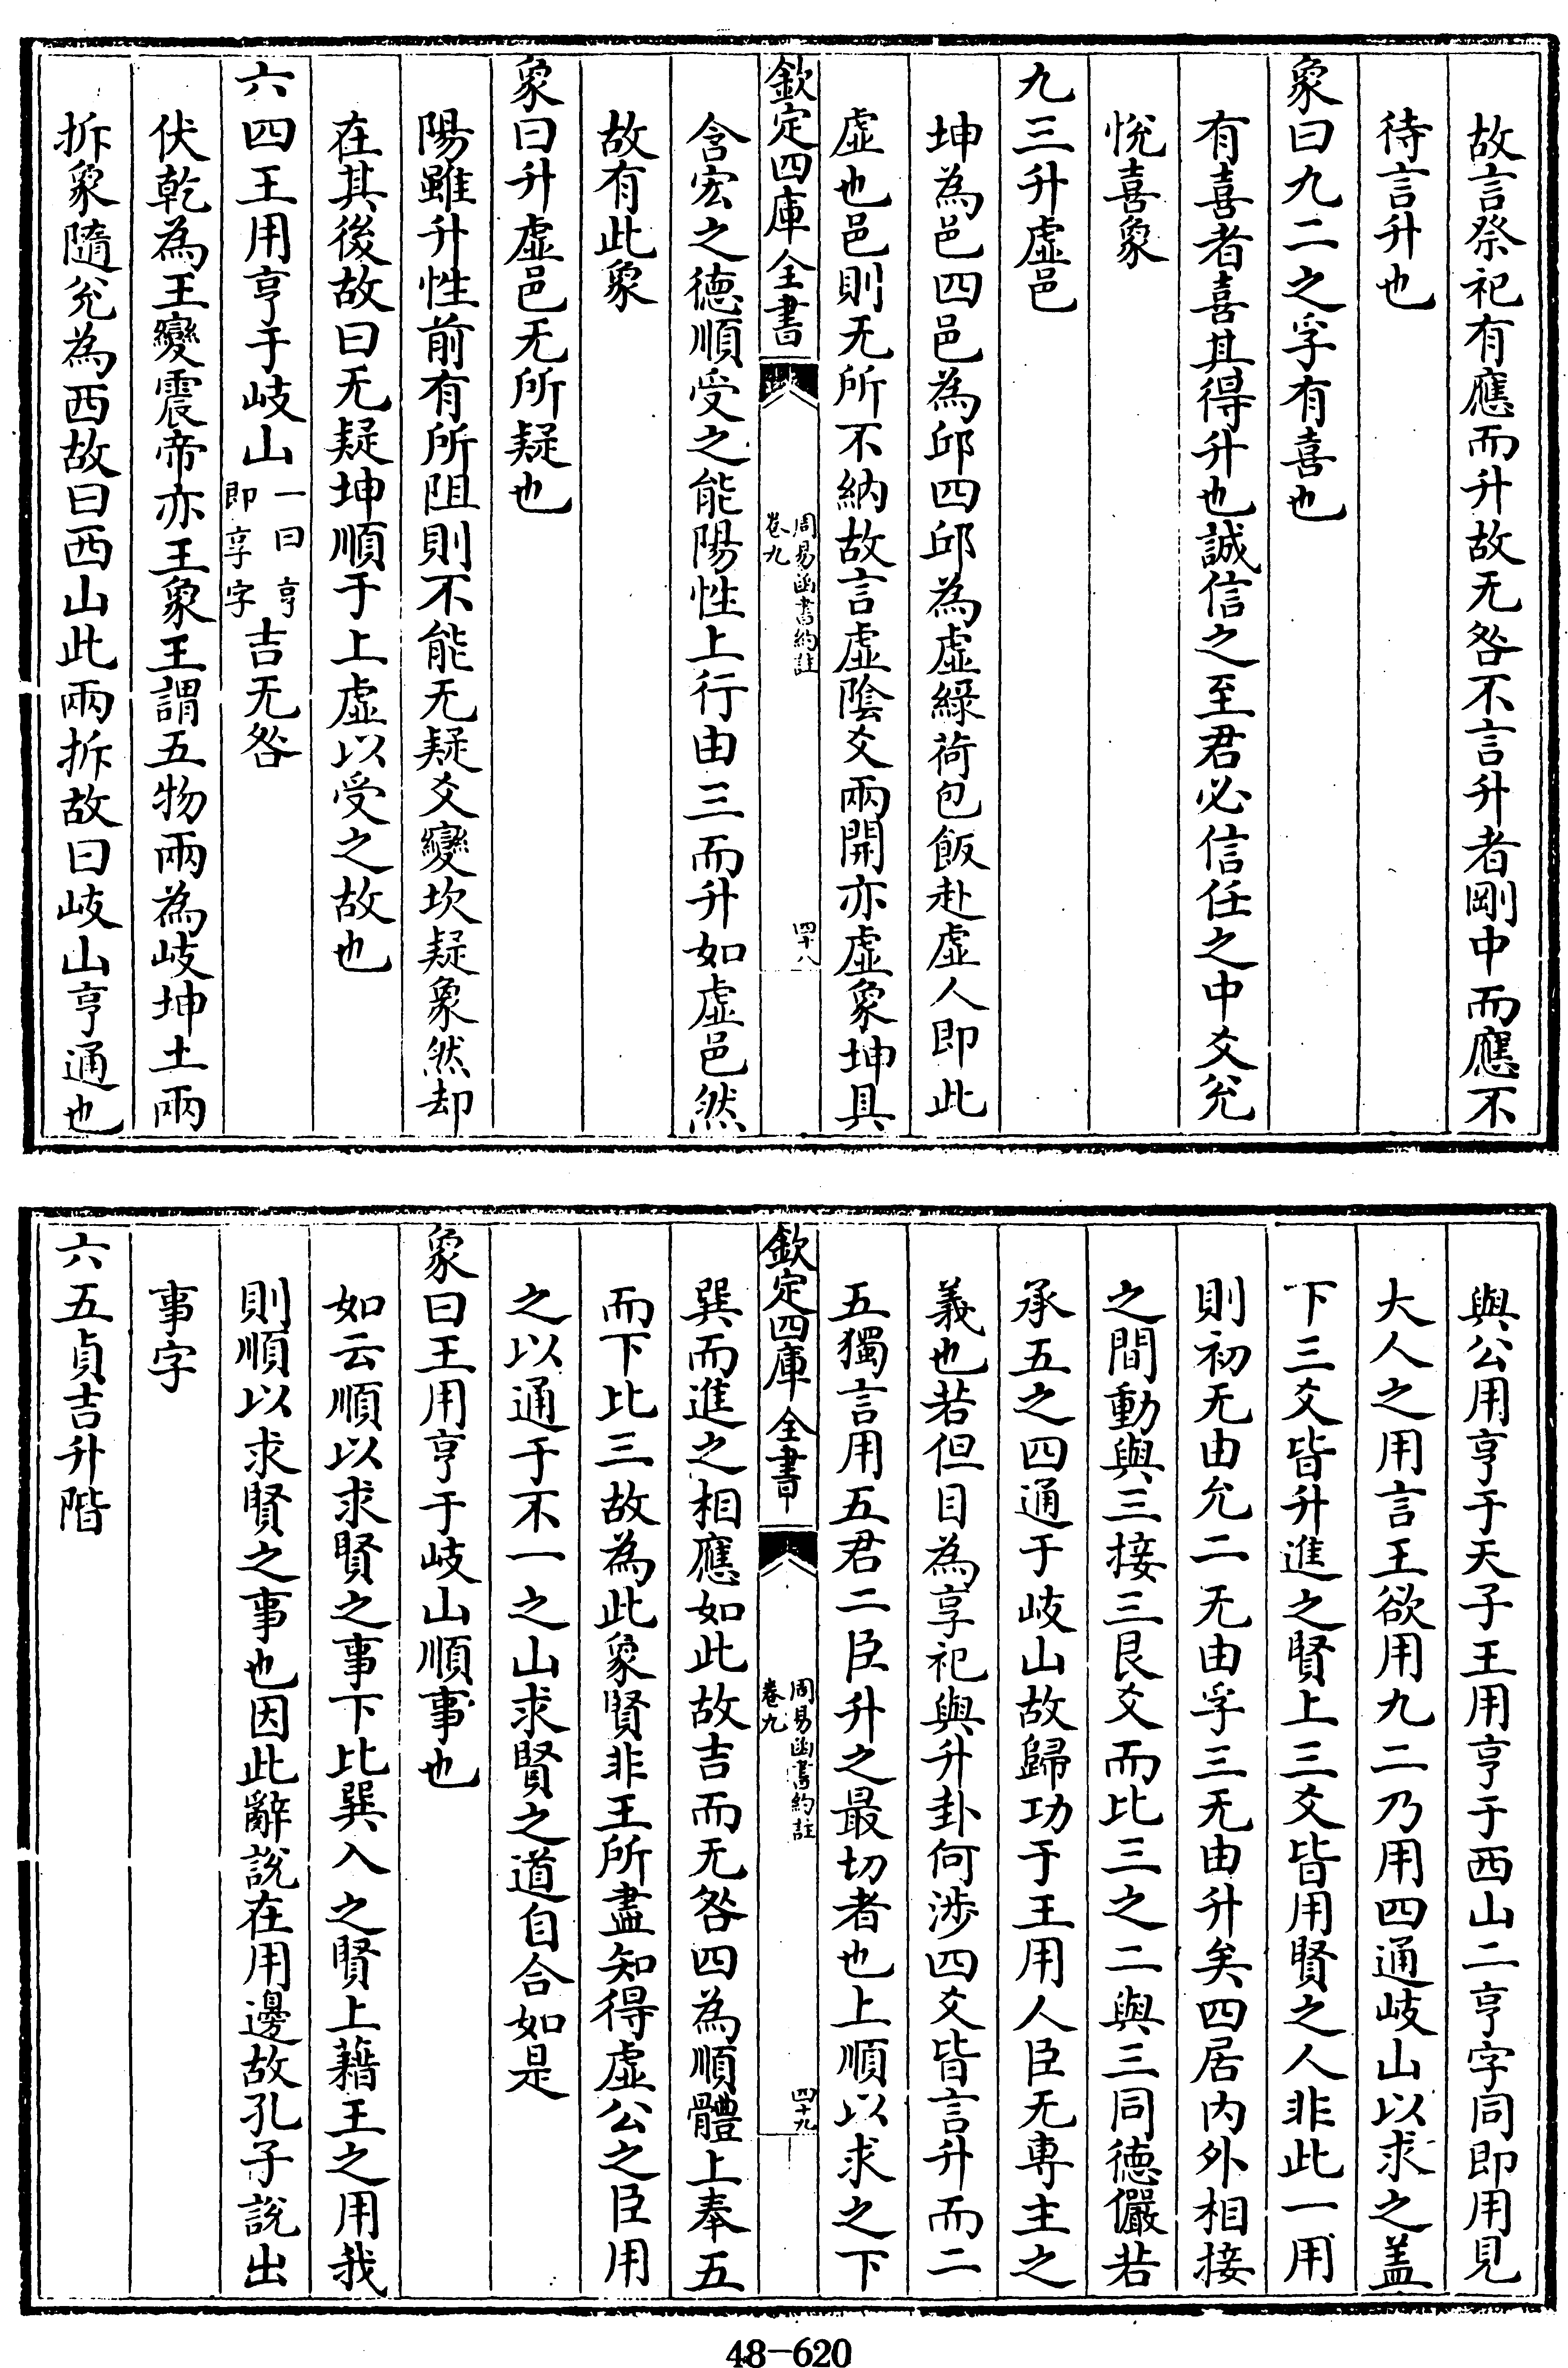 故言祭祀有應而升故无咎不言升者剛中而應不
待言升也
象曰九二之孚有喜也
有喜者喜其得升也誠信之至君必信任之中爻兊
悅喜象
九三升虛邑
坤為邑四邑為邱四邱為虛綠荷包飯赴虛人即此
虛也邑則无所不納故言虛陰爻兩開亦虛象坤具
欽定四庫全書
周易函書約註
卷九
四十八
含宏之德順受之能陽性上行由三而升如虛邑然
故有此象
象曰升虛邑无所疑也
陽雖升性前有所阻則不能无疑爻變坎疑象然却
在其後故曰无疑坤順于上虛以受之故也
六四王用亨于岐山一曰亨即享字吉无咎
伏乾為王變震帝亦王象王謂五物兩為岐坤土兩
拆象隨兊為西故曰西山此兩拆故曰岐山亨通也
與公用亨于天子王用亨于西山二亨字同即用見
大人之用言王欲用九二乃用四通岐山以求之盖
下三爻皆升進之賢上三爻皆用賢之人非此一用
則初无由允二无由孚三无由升矣四居内外相接
之間動與三接三艮爻而比三之二與三同德儼若
承五之四通于岐山故歸功于王用人臣无專主之
義也若但目為享祀與升卦何涉四爻皆言升而二
五獨言用五君二臣升之最切者也上順以求之下
欽定四庫全書
周易函書約註
卷九
四十九
巽而進之相應如此故吉而无咎四為順體上奉五
而下比三故為此象賢非王所盡知得虛公之臣用
之以通于不一之山求賢之道自合如是
象曰王用亨于岐山順事也
如云順以求賢之事下比巽入之賢上藉王之用我
則順以求賢之事也因此辭說在用邊故孔子說出
事字
六五貞吉升階
48-620